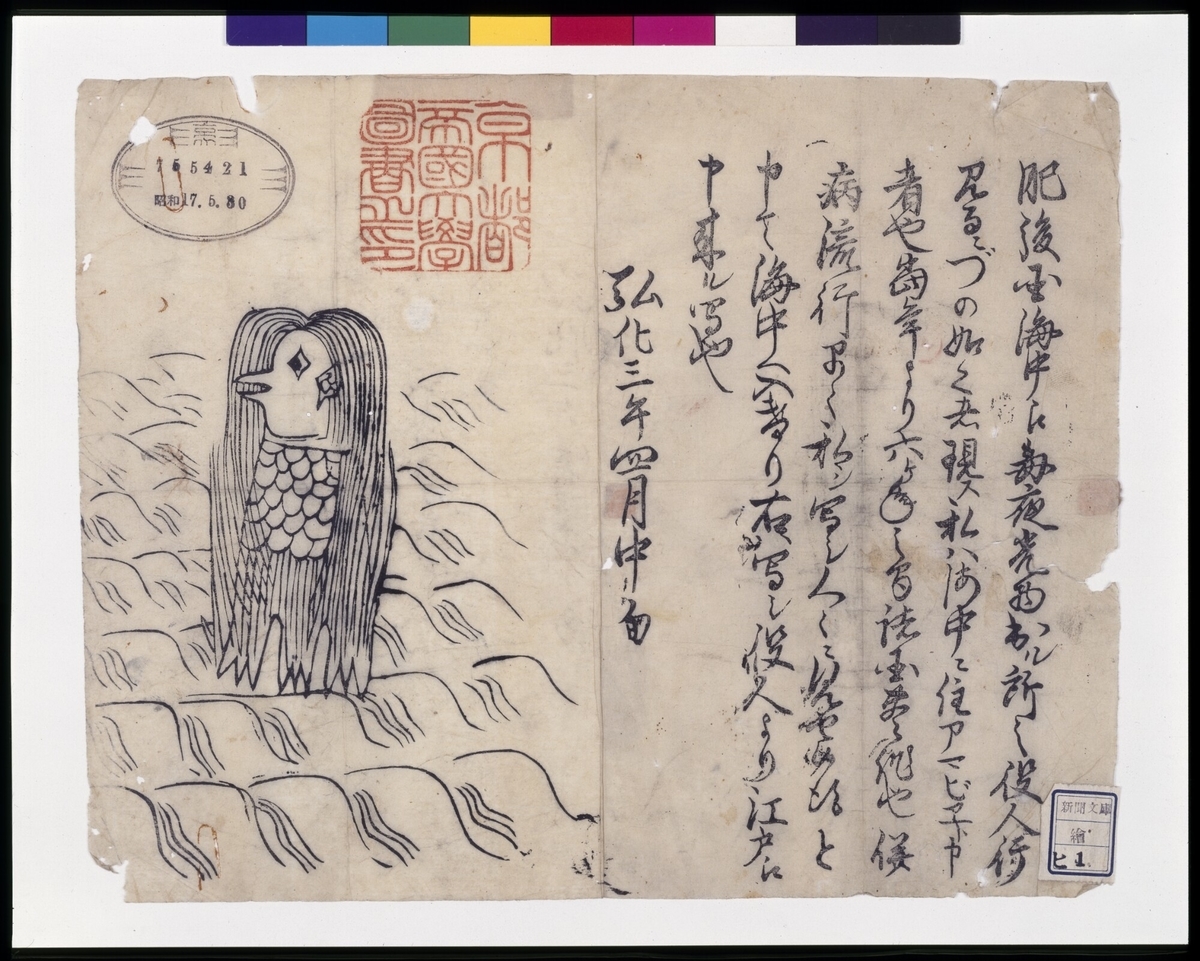 肥後国海中え毎夜光物出ル所之役人行
見るニづの如く者現ス私ハ海中ニ住アマビヱト申
者也当年より六ヶ年之間諸国豊作也併
病流行早々私シ写シ人々ニ見せ候得と
申て海中へ入けり右写シ役人より江戸え
申来ル写也
弘化三年四月中旬
京都
帝國大學
圖書之印
京
755421
昭和17.5.30
新聞文庫
繪
ヒ 1